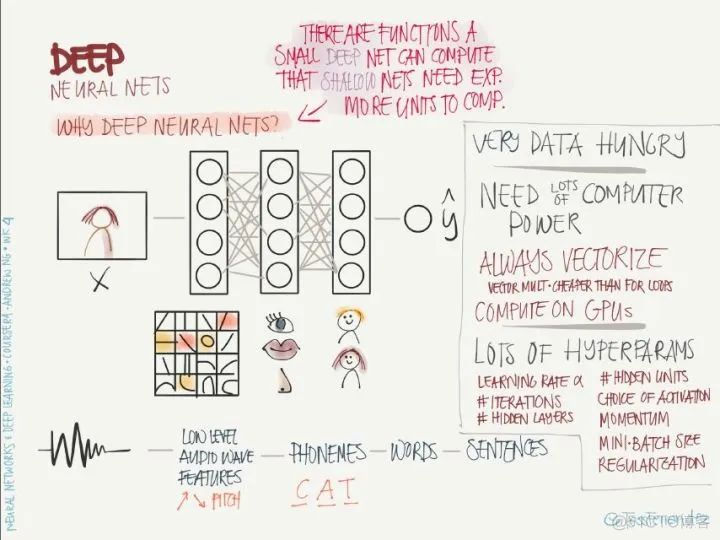 DEEP
NEURAL NETS
WHY DEEP NEURAL NETS?
THERE ARE FUNCTIONS A
SMALL DEEP NET CAN COMPUTE
THAT SHALLOW NETS NEED EXP.
MORE UNITS TO COMP.
X
ŷ
VERY DATA HUNGRY
NEED LOTS OF COMPUTER
POWER
ALWAYS VECTORIZE
VECTOR MULT. CHEAPER THAN FOR LOOPS
COMPUTE ON GPUs
LOTS OF HYPERPARAMS
LEARNING RATE α
# ITERATIONS
# HIDDEN LAYERS
# HIDDEN UNITS
CHOICE OF ACTIVATION
MOMENTUM
MINI-BATCH SIZE
REGULARIZATION
LOW LEVEL
AUDIO WAVE
FEATURES
↗↘ PITCH
PHONEMES
C A T
WORDS
SENTENCES
NEURAL NETWORKS & DEEP LEARNING • COURSERA • ANDREW NG • WK 4